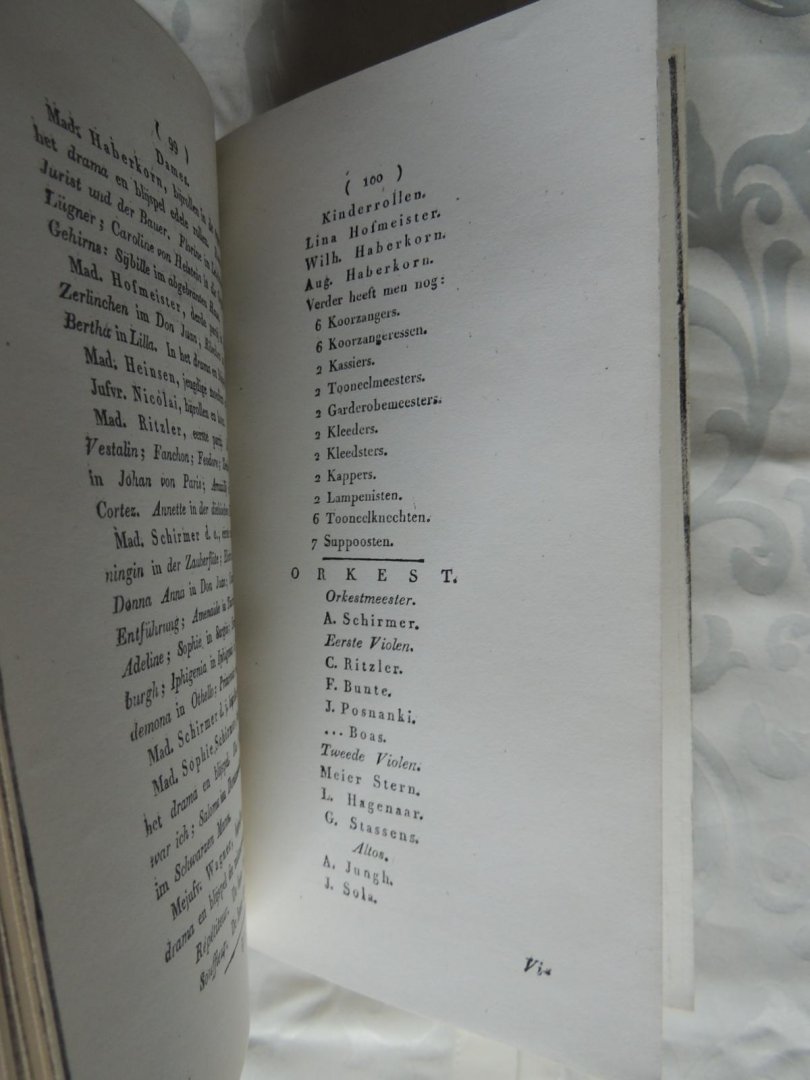 ( 99 )
Dames.
Mad. Haberkorn, bijrollen in de
het drama en blijspel edele rollen.
Jurist und der Bauer. Florine in
Lügner; Caroline von Helstein in die
Gehirns: Sybille im abgebranten Haus
Mad. Hofmeister, derde partij
Zerlinchen im Don Juan,
Bertha in Lilla. In het drama en
Mad. Heinsen, jeugdige
Jufvr. Nicolai, bijrollen en
Mad. Ritzler, eerste partij
Vestalin; Fanchon; Feodore;
in Johan von Paris;
Cortez. Annette in der
Mad. Schirmer d. e.,
ningin in der Zauberflöte;
Donna Anna in Don Juan;
Entführung; Amenaïde in
Adeline; Sophie, in Sargin;
burgh; Iphigenia in
demona in Othello;
Mad. Schirmer d. j.
Mad. Sophie Schirmer
het drama en blijspel
war ich; Salome im
im Schwarzen Mann.
Mejufv. Wagner,
drama en blijspel
Répétiteur.
Souffleur. De
( 100 )
Kinderrollen.
Lina Hofmeister.
Wilh. Haberkorn.
Aug. Haberkorn.
Verder heeft men nog:
6 Koorzangers.
6 Koorzangeressen.
2 Kassiers.
2 Tooneelmeesters.
2 Garderobemeesters.
2 Kleeders.
2 Kleedsters.
2 Kappers.
2 Lampenisten.
6 Tooneelknechten.
7 Suppoosten.
ORKEST.
Orkestmeester.
A. Schirmer.
Eerste Violen.
C. Ritzler.
F. Bunte.
J. Posnanki.
... Boas.
Tweede Violen.
Meier Stern.
L. Hagenaar.
G. Stassens.
Altos.
A. Jungh.
J. Sola.
Vi-